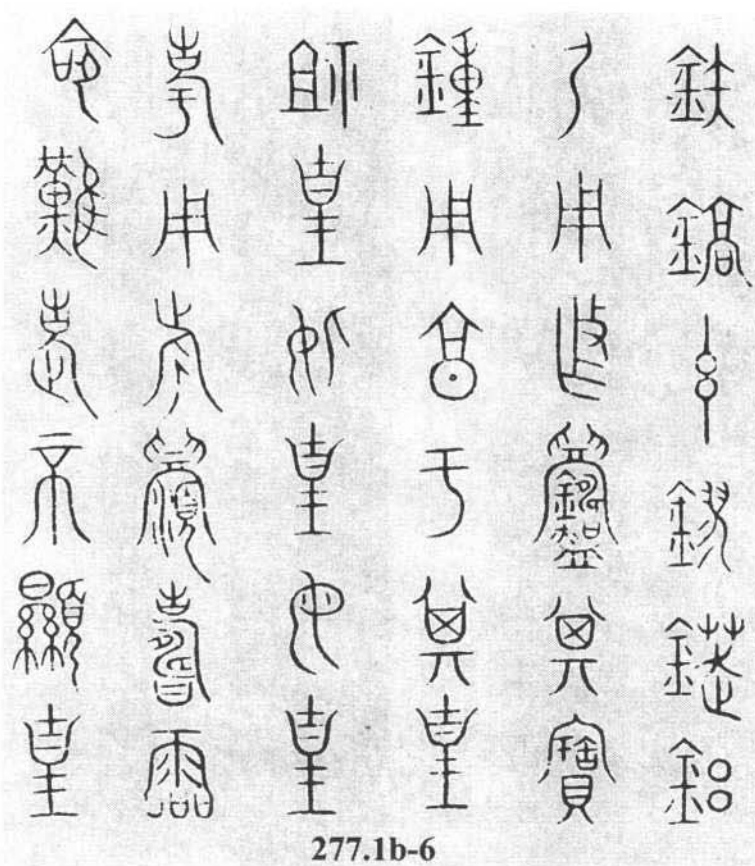 鈇鎬玄鏐錛鋁
尸用作鑄其寶
鍾用享于其皇
祖皇妣皇母皇
考用旂眉壽霝
命難老不顯皇
277.1b-6